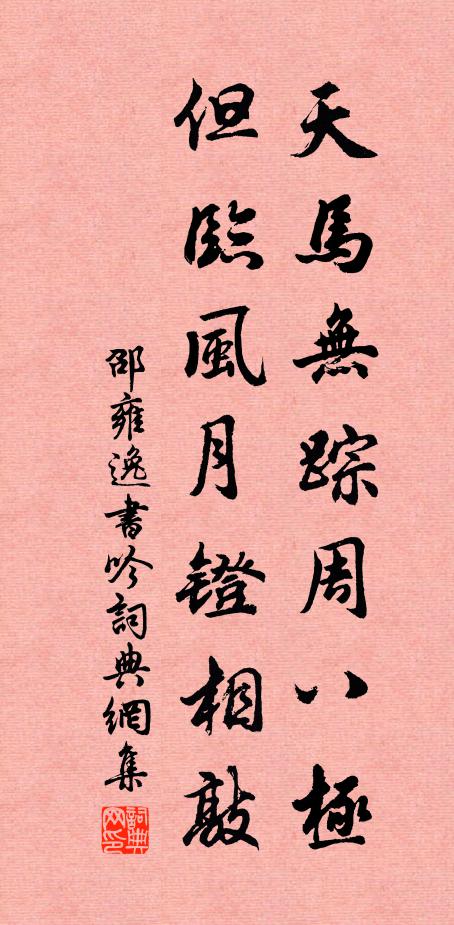 天馬無踪周八極
但臨風月鐙相敲
邵雍逸書吟詞典網集
詞典网印